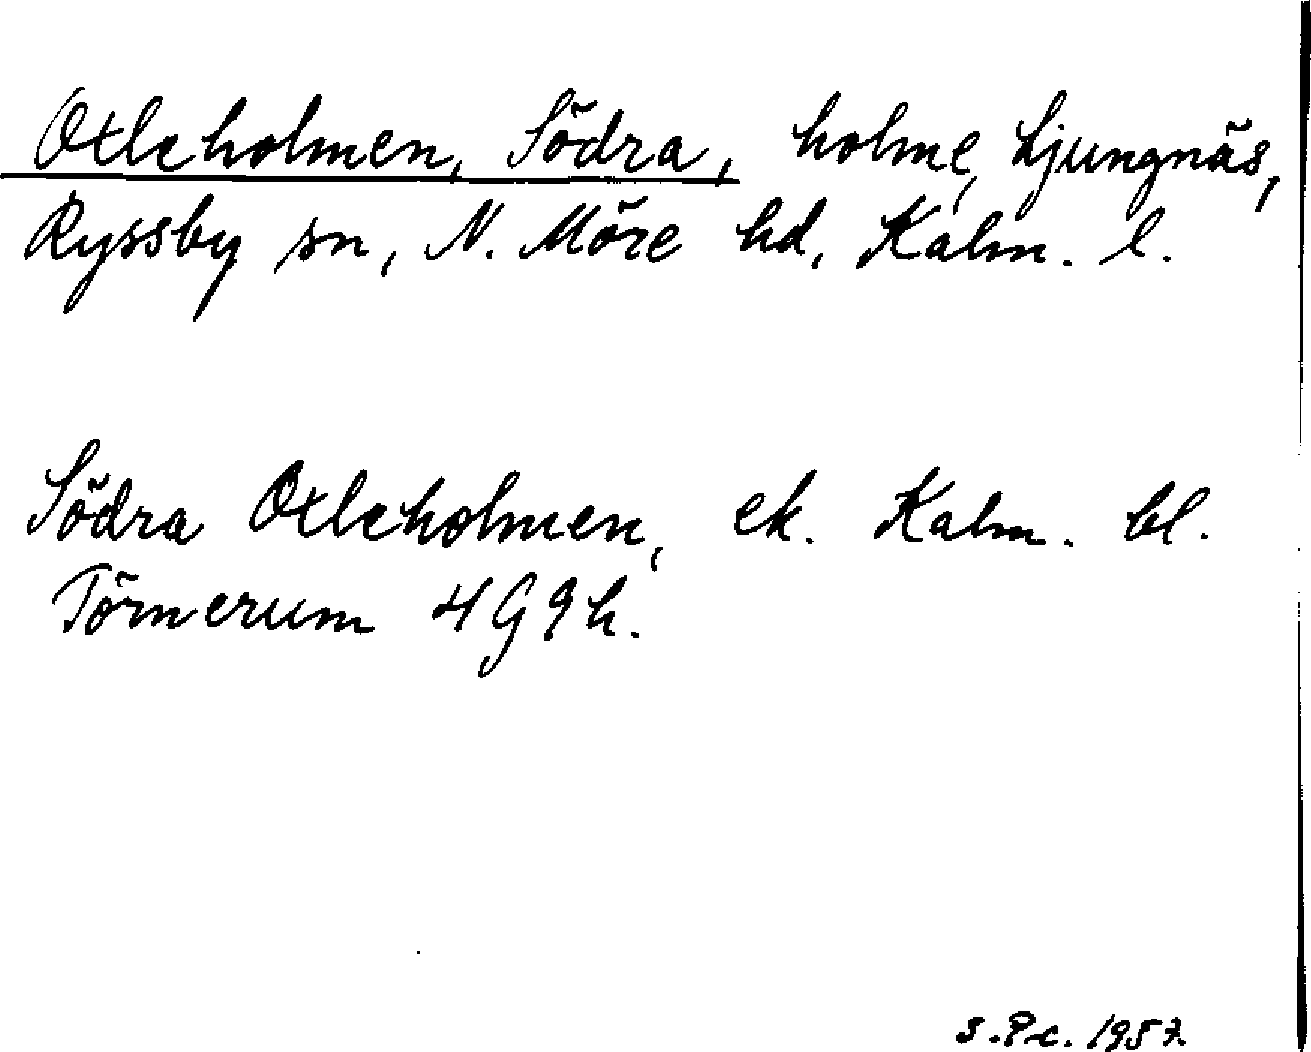 Oxleholmen, Södra, holme, Ljungnäs,
Ryssby sn, N. Möre hd, Kalm. l.
Södra Oxleholmen, ek. Kalm. bl.
Törnerum 4G9h.
S.P-c. 1957.